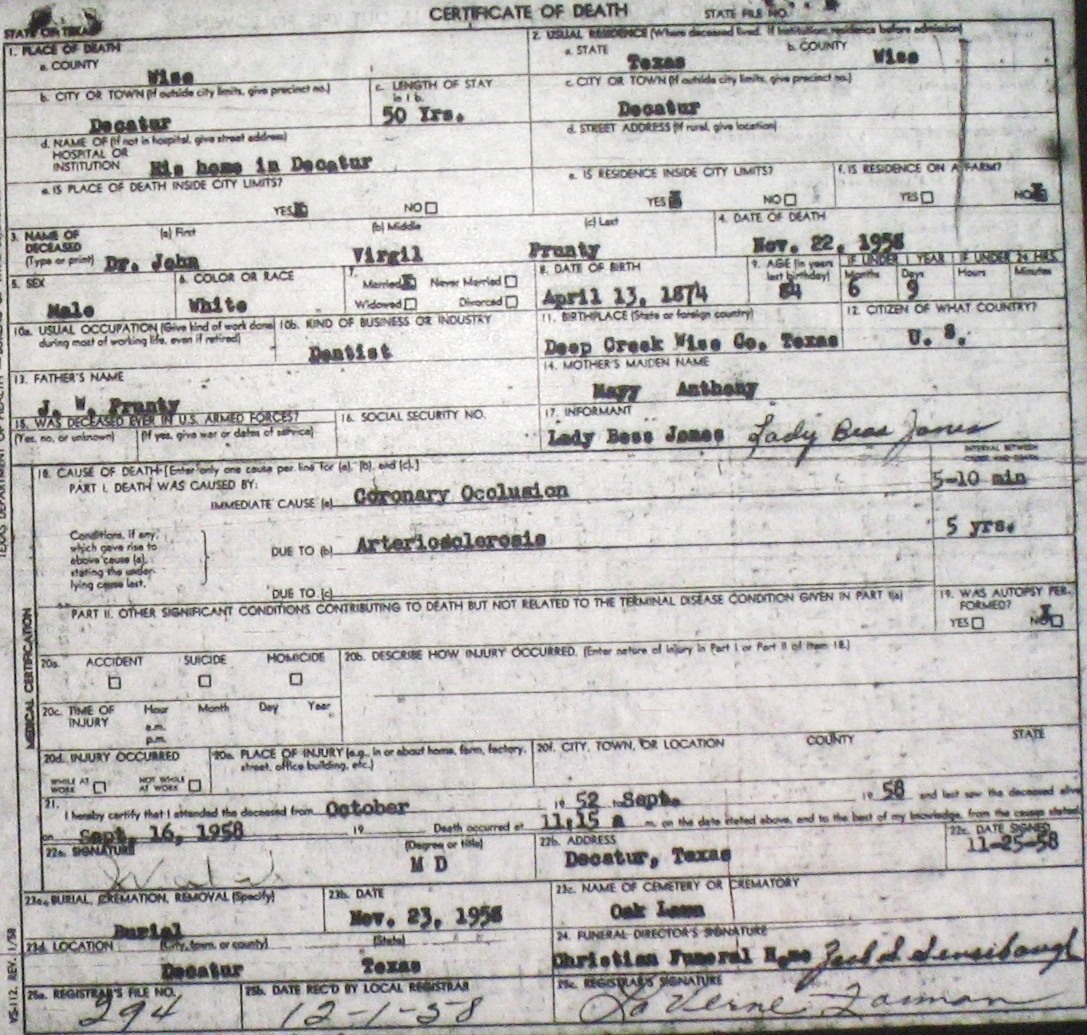 CERTIFICATE OF DEATH
STATE FILE NO.
STATE OF TEXAS
1. PLACE OF DEATH
a. COUNTY
Wise
2. USUAL RESIDENCE (Where deceased lived. If institution: residence before admission)
a. STATE
Texas
b. COUNTY
Wise
b. CITY OR TOWN (If outside city limits, give precinct no.)
Decatur
c. LENGTH OF STAY
in 1 b.
50 Yrs.
c. CITY OR TOWN (If outside city limits, give precinct no.)
Decatur
d. NAME OF (If not in hospital, give street address)
HOSPITAL OR
INSTITUTION His home in Decatur
d. STREET ADDRESS (If rural, give location)
e. IS PLACE OF DEATH INSIDE CITY LIMITS?
YES X NO
e. IS RESIDENCE INSIDE CITY LIMITS?
YES X NO
f. IS RESIDENCE ON A FARM?
YES NO X
3. NAME OF
DECEASED
(Type or print)
(a) First
Dr. John
(b) Middle
Virgil
(c) Last
Prunty
4. DATE OF DEATH
Nov. 22, 1958
5. SEX
Male
6. COLOR OR RACE
White
7.
Married X Never Married
Widowed Divorced
8. DATE OF BIRTH
April 13, 1874
9. AGE (In years
last birthday)
84
IF UNDER 1 YEAR
Months Days
6 9
IF UNDER 24 HRS.
Hours Minutes
10a. USUAL OCCUPATION (Give kind of work done
during most of working life, even if retired)
10b. KIND OF BUSINESS OR INDUSTRY
Dentist
11. BIRTHPLACE (State or foreign country)
Deep Creek Wise Co. Texas
12. CITIZEN OF WHAT COUNTRY?
U. S.
13. FATHER'S NAME
J. W. Prunty
14. MOTHER'S MAIDEN NAME
Anthony
15. WAS DECEASED EVER IN U.S. ARMED FORCES?
(Yes, no, or unknown) (If yes, give war or dates of service)
16. SOCIAL SECURITY NO.
17. INFORMANT
Lady Bess Jones Lady Bess Jones
MEDICAL CERTIFICATION
18. CAUSE OF DEATH [Enter only one cause per line for (a), (b), and (c).]
PART I. DEATH WAS CAUSED BY:
IMMEDIATE CAUSE (a) Coronary Occlusion
INTERVAL BETWEEN
ONSET AND DEATH
5-10 min
Conditions, if any,
which gave rise to
above cause (a),
stating the under-
lying cause last.
DUE TO (b) Arteriosclerosis
5 yrs.
DUE TO (c)
PART II. OTHER SIGNIFICANT CONDITIONS CONTRIBUTING TO DEATH BUT NOT RELATED TO THE TERMINAL DISEASE CONDITION GIVEN IN PART I(a)
19. WAS AUTOPSY PER-
FORMED?
YES NO X
20a. ACCIDENT SUICIDE HOMICIDE
20b. DESCRIBE HOW INJURY OCCURRED. (Enter nature of injury in Part I or Part II of item 18.)
20c. TIME OF
INJURY
Hour Month Day Year
a.m.
p.m.
20d. INJURY OCCURRED
WHILE AT
WORK
NOT WHILE
AT WORK
20e. PLACE OF INJURY (e.g., in or about home, farm, factory,
street, office building, etc.)
20f. CITY, TOWN, OR LOCATION COUNTY STATE
21.
I hereby certify that I attended the deceased from October 19 52 to Sept. 19 58 and last saw the deceased alive
on Sept. 16, 1958 19 Death occurred at 11:15 a m. on the date stated above, and to the best of my knowledge, from the causes stated.
22a. SIGNATURE
(Degree or title)
M D
22b. ADDRESS
Decatur, Texas
22c. DATE SIGNED
11-25-58
23a. BURIAL, CREMATION, REMOVAL (Specify)
Burial
23b. DATE
Nov. 23, 1958
23c. NAME OF CEMETERY OR CREMATORY
Oak Lawn
23d. LOCATION (City, town, or county) (State)
Decatur Texas
24. FUNERAL DIRECTOR'S SIGNATURE
Christian Funeral Home
25a. REGISTRAR'S FILE NO.
294
25b. DATE REC'D BY LOCAL REGISTRAR
12-1-58
25c. REGISTRAR'S SIGNATURE
La Verne
VS-112, REV. 1/58